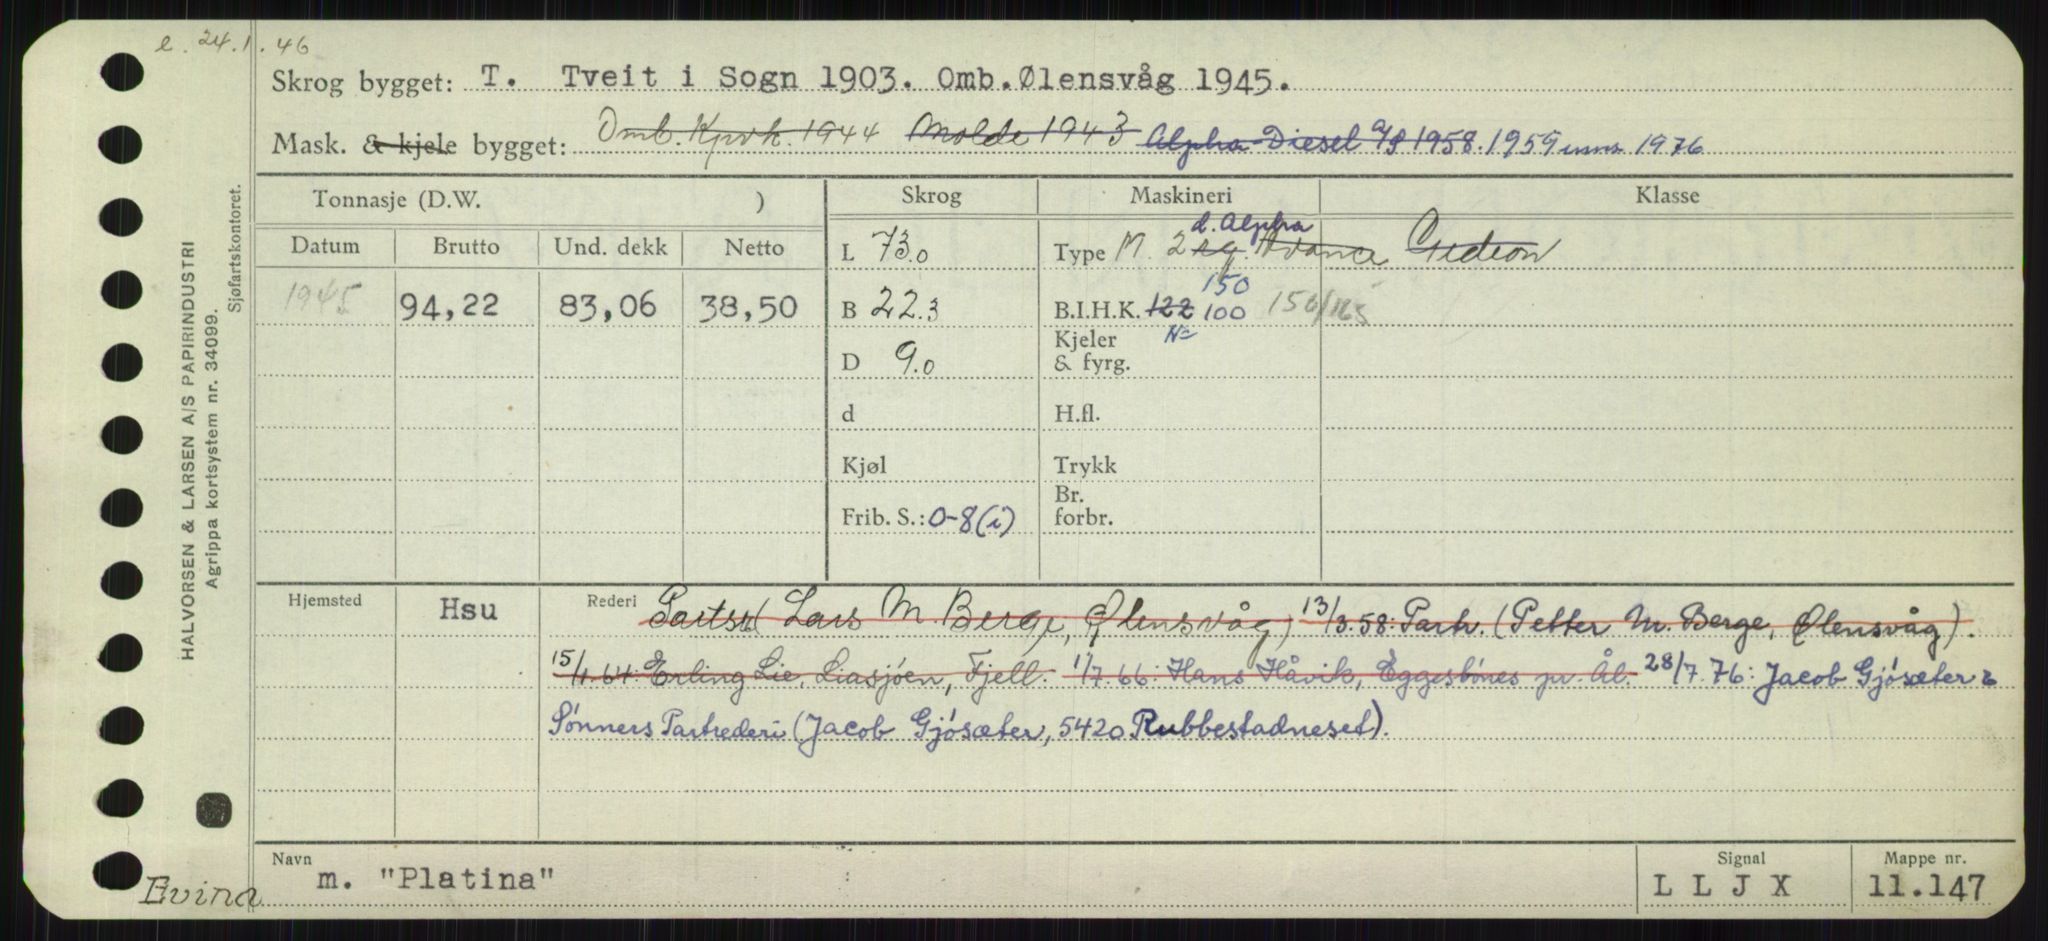 e. 24.1.46
Skrog bygget: T. Tveit i Sogn 1903. Omb. Ølensvåg 1945.
Mask. & kjele bygget: Omb. Kpvk. 1944 Molde 1943 Alpha-Diesel A/S 1958. 1959 inns. 1976
Tonnasje (D.W. ) Skrog Maskineri Klasse
Datum Brutto Und. dekk Netto L 73.0 Type M. 2 sg. Avance Gideon
d. Alpha
1945 94,22 83,06 38,50 B 22.3 B.I.H.K. 122 100 150/165
150
D 9.0 Kjeler & fyrg. No
d H.fl.
Kjøl Trykk
Frib. S.: 0-8(i) Br. forbr.
Hjemsted Hsu Rederi Partsr. (Lars M. Berge, Ølensvåg) 13/3.58: Partr. (Petter M. Berge, Ølensvåg).
15/1.64: Erling Lie, Liasjøen, Fjell. 1/7.66: Hans Håvik, Eggesbönes pr. Ål. 28/7.76: Jacob Gjösæter &
Sönners Partrederi (Jacob Gjösæter, 5420 Rubbestadneset).
Navn m. "Platina" Signal L L J X Mappe nr. 11.147
Evina
HALVORSEN & LARSEN A/S PAPIRINDUSTRI
Agrippa kortsystem nr. 34099.
Sjøfartskontoret.